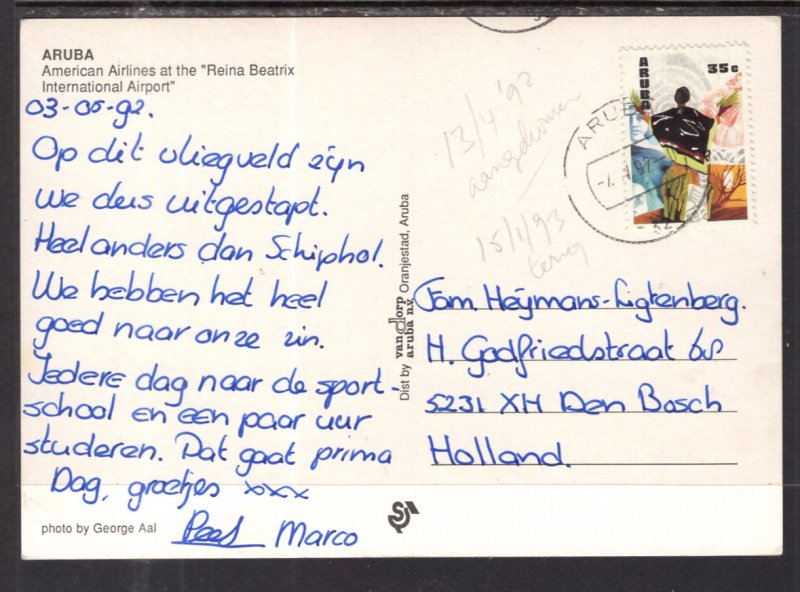 ARUBA
American Airlines at the "Reina Beatrix
International Airport"
03-05-92.
Op dit vliegveld zijn
we dus uitgestapt.
Heel anders dan Schiphol.
We hebben het heel
goed naar onze zin.
Iedere dag naar de sport-
school en een paar uur
studeren. Dat gaat prima
Dag, groetjes xxx
Marco
photo by George Aal
Dist by van dorp aruba n.v. Oranjestad, Aruba
13/4 '92
aangekomen
15/1/93
terug
ARUBA
35c
ARUBA
Fam. Heijmans-Ligtenberg.
H. Godfriedstraat
5231 XH Den Bosch
Holland.